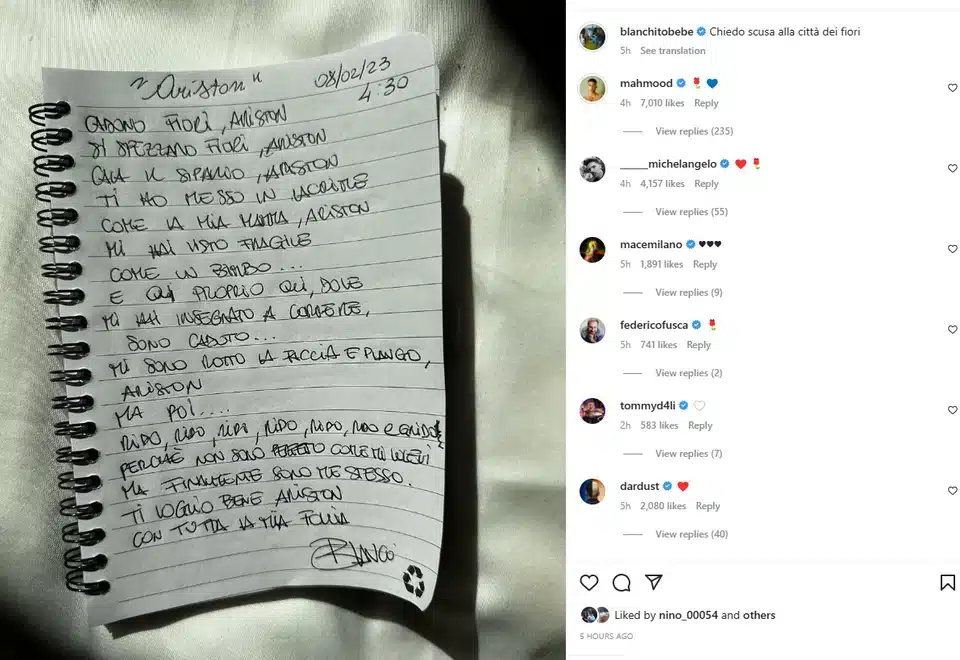 "Ariston"
08/02/23
4:30
CADONO FIORI, ARISTON
SI SPEZZANO FIORI, ARISTON
CALA IL SIPARIO, ARISTON
TI HO MESSO IN LACRIME
COME LA MIA MAMMA, ARISTON
MI HAI VISTO FRAGILE
COME UN BIMBO...
E QUI PROPRIO QUI, DOVE
MI HAI INSEGNATO A CORRERE,
SONO CADUTO...
MI SONO ROTTO LA FACCIA E PIANGO,
ARISTON
MA POI....
RIDO, RIDO, RIDO, RIDO, RIDO, RIDO E GRIDO
PERCHÉ NON SONO COME MI VOLEVI
MA FINALMENTE SONO ME STESSO.
TI VOGLIO BENE ARISTON
CON TUTTA LA MIA FOLLIA
BLANCO
blanchitobebe Chiedo scusa alla città dei fiori
5h See translation
mahmood 🌷 💙
4h 7,010 likes Reply
View replies (235)
_____michelangelo ❤️ 🌷
4h 4,157 likes Reply
View replies (55)
macemilano ♥♥♥
5h 1,891 likes Reply
View replies (9)
federicofusca 🌷
5h 741 likes Reply
View replies (2)
tommyd4li 🤍
2h 583 likes Reply
View replies (7)
dardust ❤️
5h 2,080 likes Reply
View replies (40)
Liked by nino_00054 and others
5 HOURS AGO